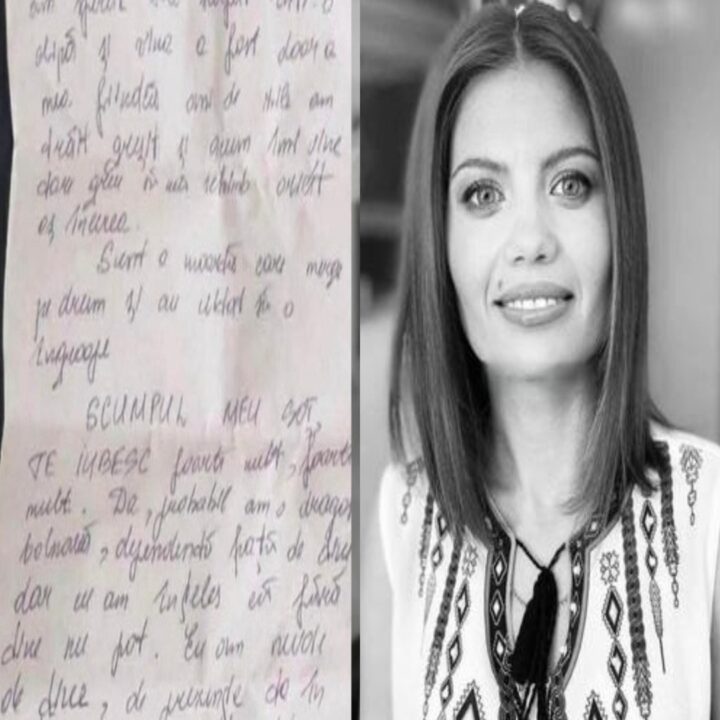 am
clipă și vina a fost doar a
mea. fiindcă am de am
trăit greșit și acum îmi vine
doar greu să mă schimb oricât
aș încerca
Sunt o moartă care merge
pe drum și au uitat să o
îngroape
SCUMPUL MEU SOȚ,
TE IUBESC foarte mult, foarte
mult. Da, probabil am o dragos
bolnavă, dependentă față de tine
dar eu am înțeles că fără
tine nu pot. Eu am nevoie
de tine, de prezența ta în